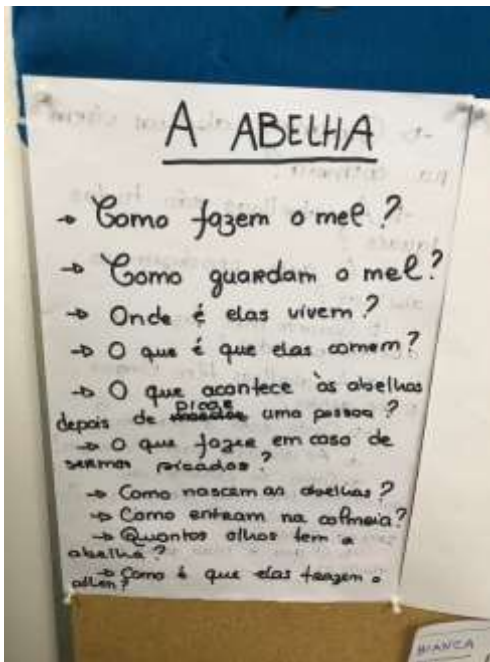 A ABELHA
→ Como fazem o mel?
→ Como guardam o mel?
→ Onde é elas vivem?
→ O que é que elas comem?
→ O que acontece às abelhas
picar
depois de uma pessoa?
→ O que fazer em caso de
sermos picados?
→ Como nascem as abelhas?
→ Como entram na colmeia?
→ Quantos olhos tem a
abelha?
→ Como é que elas trazem o
BIANCA